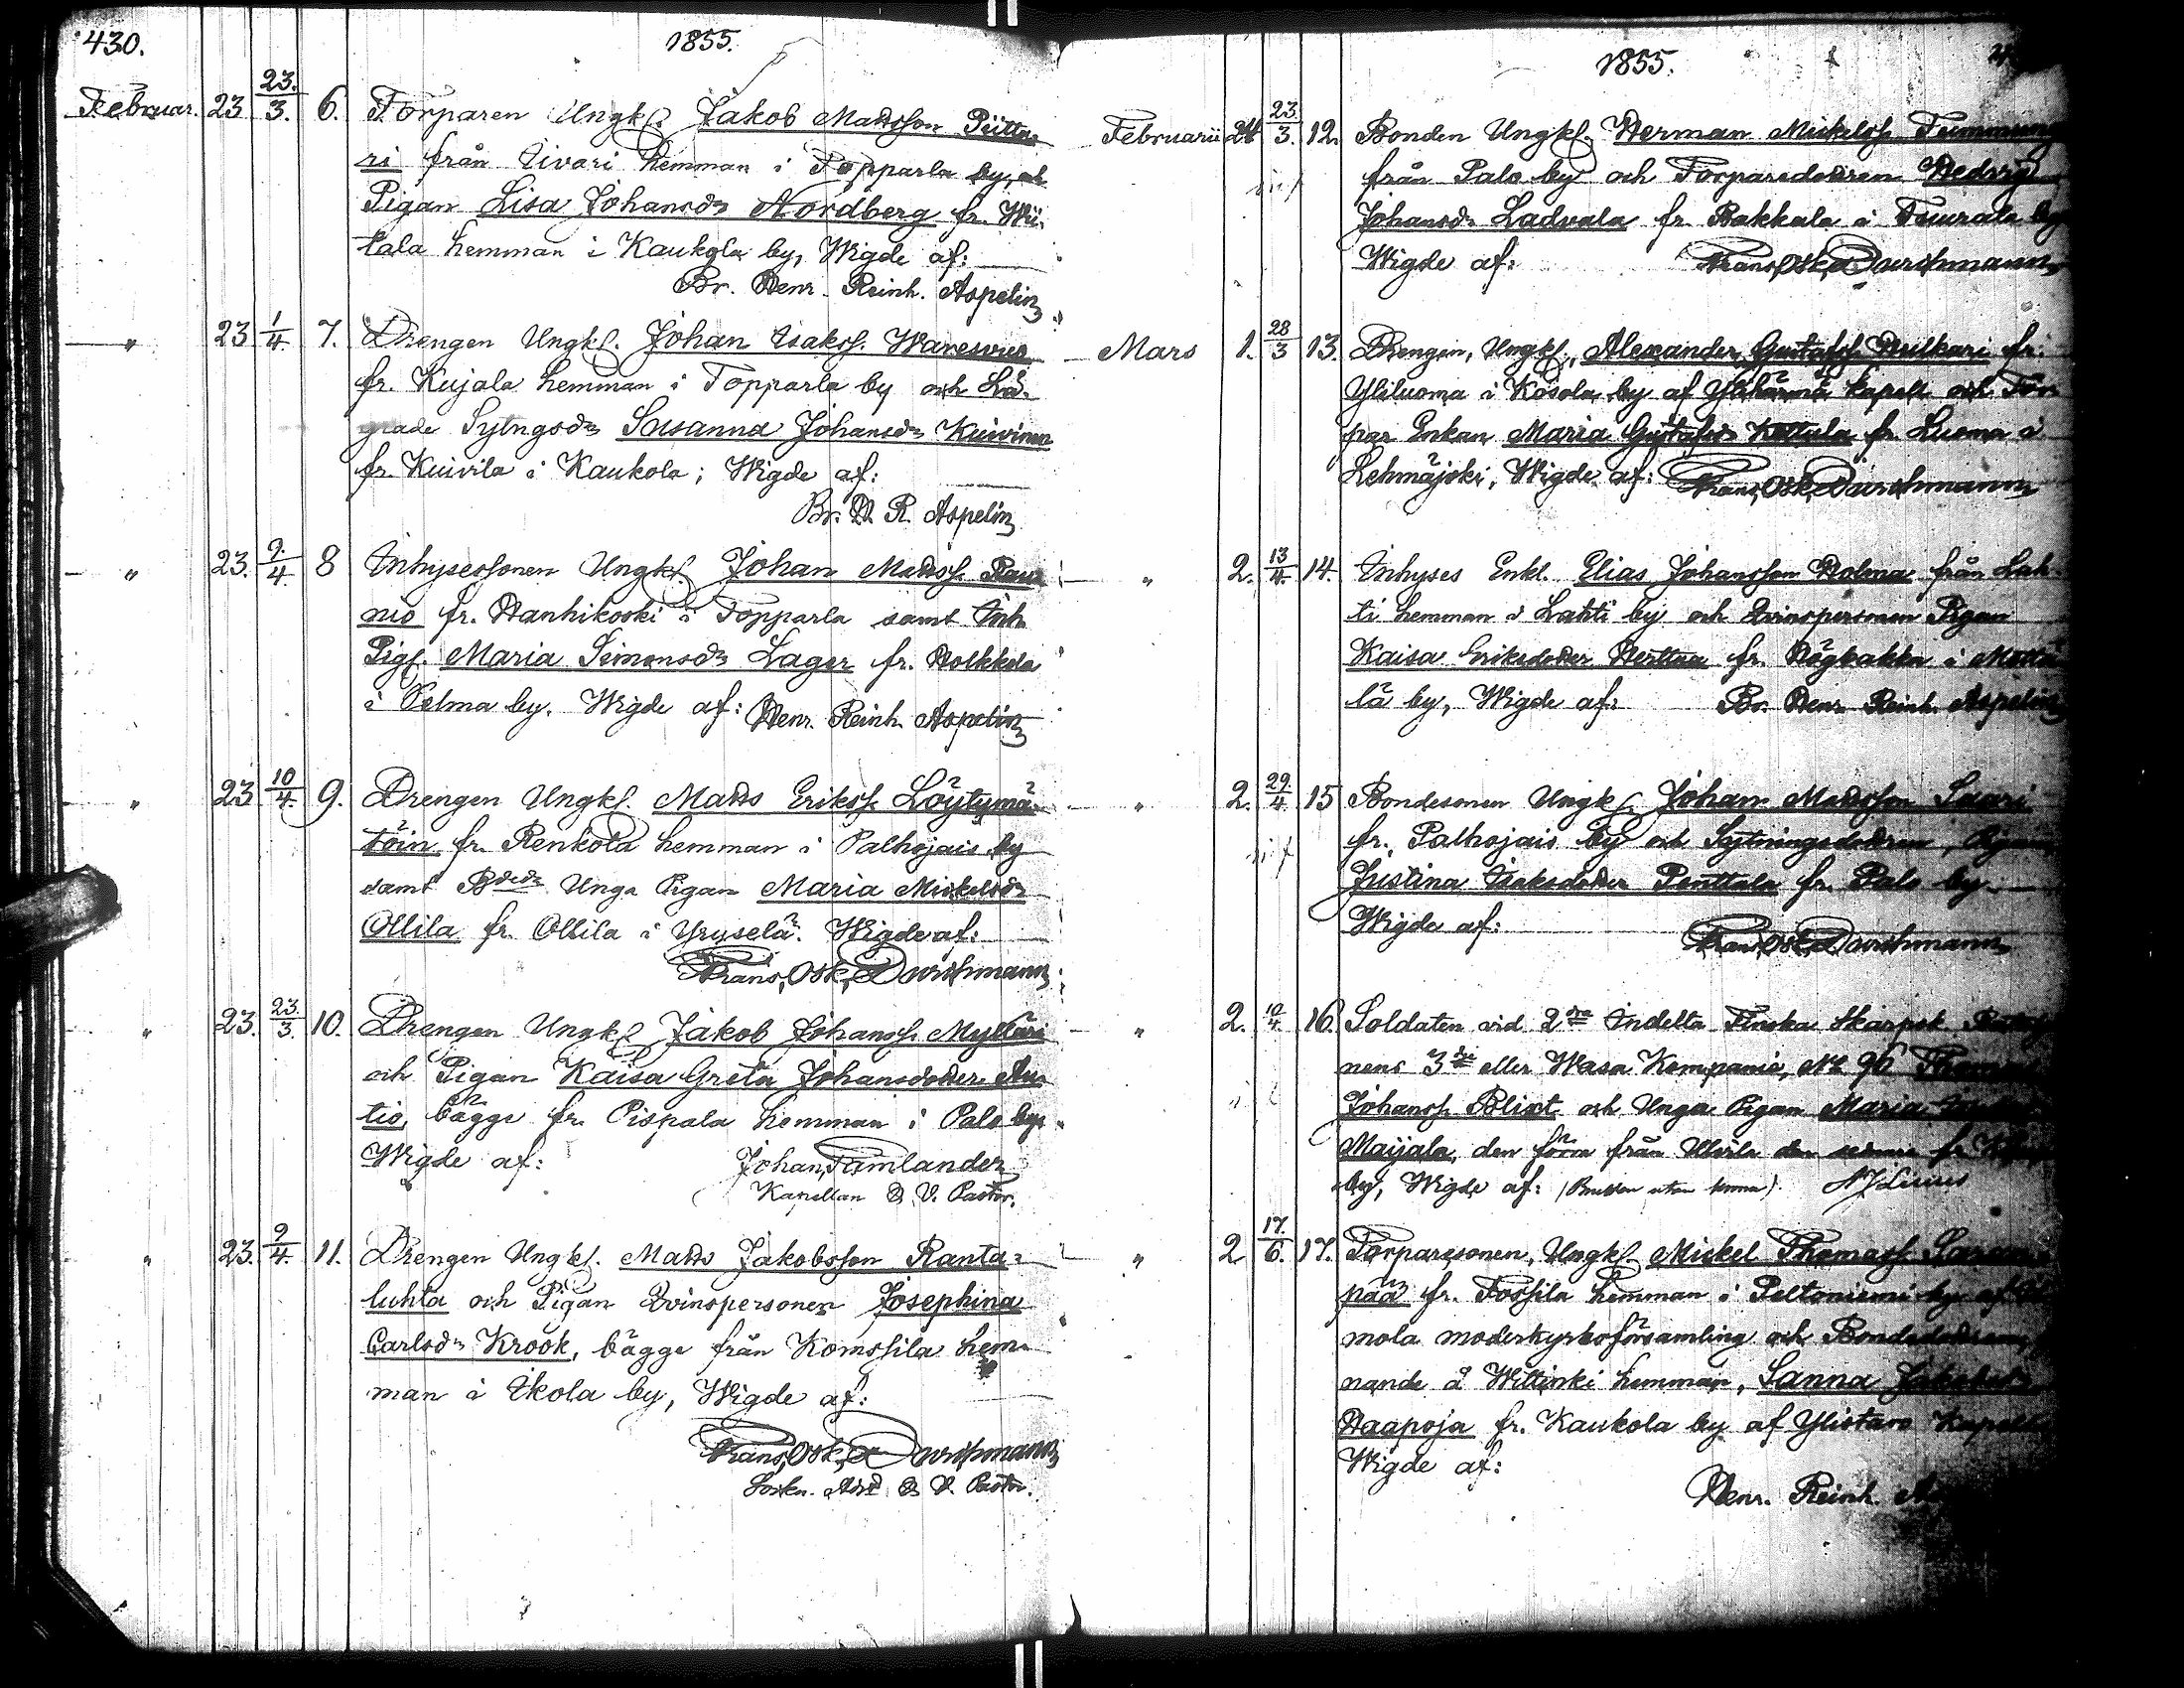 430.
1855.
Februar. 23 23/3. 6. Torparen Ungk. Jakob Mattsson Piitta-
ri från Iivari hemman i Topparla by, och
Pigan Lisa Johansdr Nordberg fr. Wii-
tala hemman i Kaukola by, Wigde af:
Br. Henr. Reinh. Aspelin
" 23 1/4. 7. Drengen Ungk. Johan Isakss. Waresvuo
fr. Kujala hemman i Topparla by och Lå-
grade Sytngsdr Susanna Johansdr Kuivinen
fr. Kuivila i Kaukola; Wigde af:
Br. H. R. Aspelin
" 23. 9./4. 8 Inhysessonen Ungk. Johan Matts. Rau-
nio fr. Hanhikoski i Topparla samt Inh.
Pig. Maria Simonsdr Lager fr. Holkkola
i Pelma by. Wigde af: Henr. Reinh. Aspelin
" 23 10/4. 9. Drengen Ungk. Matts Erikss. Löytymä-
töin fr. Renkola hemman i Palhojais by
samt Bdedr Unga Pigan Maria Mickelsdr
Ollila fr. Ollila i Yryselä. Wigde af:
Frans, Osk, Durchmann
" 23. 23./3 10. Drengen Ungk. Jakob Johanss. Myllari
och Pigan Kaisa Greta Johansdotter An-
tio, bägge fr. Pispala hemman i Palo by.
Wigde af: Johan, Tamlander
Kapellan & V. Pastor.
" 23. 9/4. 11. Drengen Ungk. Matts Jakobsson Ranta-
luhta och Pigan Qvinspersonen Josephina
Carlsdr Krook, bägge från Komssila hem-
man i Ikola by, Wigde af:
Frans, Osk, Durchmann
Sockn. Adj. & V. Pastor.
1855.
Februarii 24 23/3. 12. Bonden Ungk. Herman Mickelss.
från Palo by och Torparedottren Hedvig
Johansdr Ladvala fr. Bakkala i Tuurala by
Wigde af: Frans, Osk, Durchmann
Mars 1. 28/3 13. Drengen, Ungk., Alexander Gustafss. Hulkari fr.
Yliluoma i Kosola by af Ylihärmä kapell och Tor-
par Enkan Maria Gustafsdr Kettula fr. Luoma i
Lehmäjoki, Wigde af: Frans, Osk, Durchmann
" 2. 13/4. 14. Inhyses Enkl. Elias Johansson Holma från Lah-
ti hemman i Lahti by och Qvinspersonen Pigan
Kaisa Eriksdotter Herttua fr. i
lä by, Wigde af: Br. Henr. Reinh. Aspelin
" 2. 29./4 15 Bondesonen Ungk. Johan Mattsson Saari
fr. Palhojais by och Sytningsdottren, Pigan
Justina Isaksdotter Penttala fr. Palo by
Wigde af: Frans, Osk, Durchmann
" 2. 10/4. 16. Soldaten vid 2dra Indelta Finska Skarpsk.
nens 3dje eller Wasa Kompanie, No 96
Johanss. Blixt och Unga Pigan Maria
Maijala, den förra från Ulvila den senare fr.
by, Wigde af:
" 2 17./6. 17. Torparesonen, Ungk. Mickel Thomass.
pää fr. Fossila hemman i Peltoniemi by af
mola moderkyrkoförsamling och Bondedottren,
nande å Wittinki hemman, Sanna
Haapoja fr. Kaukola by af Ylistaro Kapell
Wigde af:
Henr. Reinh.